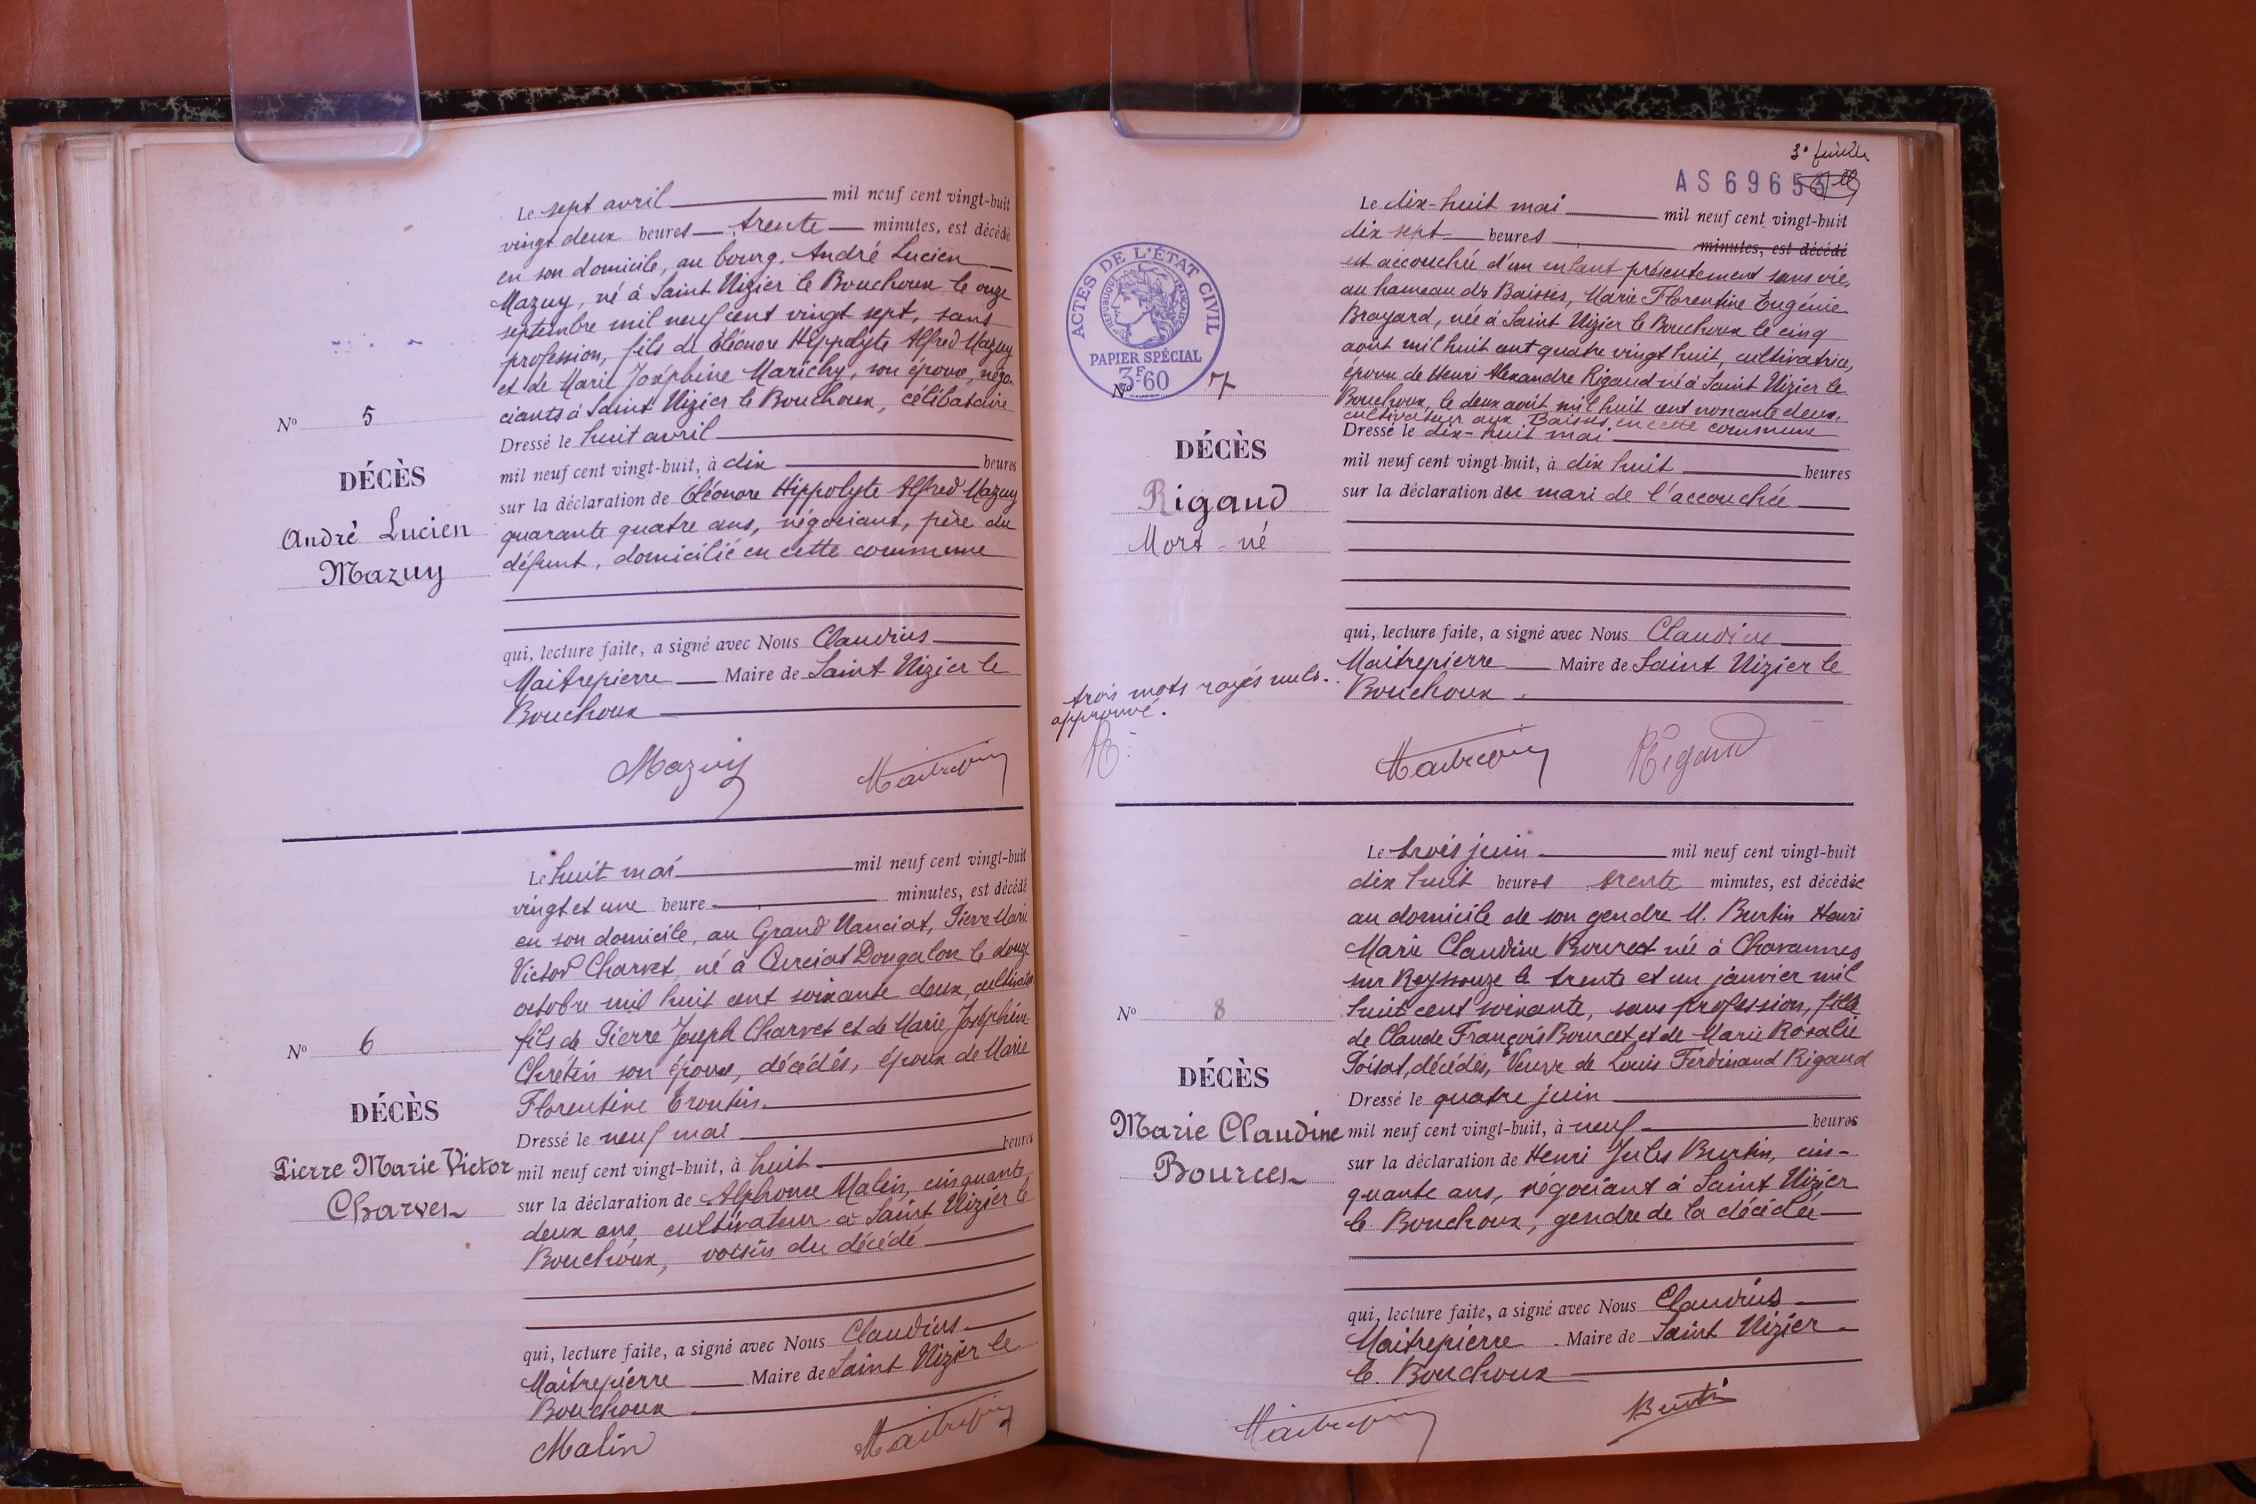 Le sept avril mil neuf cent vingt-huit
vingt deux heures trente minutes, est décédé
en son domicile, au bourg, André Lucien
Mazuy, né à Saint Nizier le Bouchoux le onze
septembre mil neuf cent vingt sept, sans
profession, fils de Éléonore Hippolyte Alfred Mazuy
et de Marie Joséphine Marichy, son épouse, négo-
ciants à Saint Nizier le Bouchoux, célibataire
Dressé le huit avril
mil neuf cent vingt-huit, à dix heures
sur la déclaration de Éléonore Hippolyte Alfred Mazuy
quarante quatre ans, négociant, père du
défunt, domicilié en cette commune
qui, lecture faite, a signé avec Nous Claudius
Maitrepierre Maire de Saint Nizier le
Bouchoux
Mazuy Maitrepierre
No 5
DÉCÈS
André Lucien
Mazuy
Le huit mai mil neuf cent vingt-huit
vingt et une heure minutes, est décédé
en son domicile, au Grand Nanciat, Pierre Marie
Victor Charvet, né à Curciat Dongalon le douze
octobre mil huit cent soixante deux, cultivateur
fils de Pierre Joseph Charvet et de Marie Joséphine
Chrétin son épouse, décédés, époux de Marie
Florentine Trontin.
Dressé le neuf mai
mil neuf cent vingt-huit, à huit heures
sur la déclaration de Alphonse Malin, cinquante
deux ans, cultivateur à Saint Nizier le
Bouchoux, voisin du décédé
qui, lecture faite, a signé avec Nous Claudius
Maitrepierre Maire de Saint Nizier le
Bouchoux
Malin Maitrepierre
No 6
DÉCÈS
Pierre Marie Victor
Charvet
AS 6965
Le dix-huit mai mil neuf cent vingt-huit
dix sept heures minutes, est décédé
est accouchée d'un enfant présentement sans vie,
au hameau des Baisses, Marie Florentine Eugénie
Brayard, née à Saint Nizier le Bouchoux le cinq
août mil huit cent quatre vingt huit, cultivatrice,
épouse de Henri Alexandre Rigaud né à Saint Nizier le
Bouchoux, le deux août mil huit cent nonante deux,
cultivateur aux Baisses en cette commune
Dressé le dix-huit mai
mil neuf cent vingt-huit, à dix huit heures
sur la déclaration du mari de l'accouchée
qui, lecture faite, a signé avec Nous Claudius
Maitrepierre Maire de Saint Nizier le
Bouchoux.
Maitrepierre Rigaud
ACTES DE L'ÉTAT CIVIL
RÉPUBLIQUE FRANÇAISE
PAPIER SPÉCIAL
3F60
No 7
DÉCÈS
Rigaud
Mort-né
trois mots rayés nuls.
approuvé.
Le trois juin mil neuf cent vingt-huit
dix huit heures trente minutes, est décédée
au domicile de son gendre M. Burtin Henri
Marie Claudine Bourcet née à Chavannes
sur Reyssouze le trente et un janvier mil
huit cent soixante, sans profession, fille
de Claude François Bourcet et de Marie Rosalie
Poisat, décédés, Veuve de Louis Ferdinand Rigaud
Dressé le quatre juin
mil neuf cent vingt-huit, à neuf heures
sur la déclaration de Henri Jules Burtin, cin-
quante ans, négociant à Saint Nizier
le Bouchoux, gendre de la décédée
qui, lecture faite, a signé avec Nous Claudius
Maitrepierre Maire de Saint Nizier
le Bouchoux
Maitrepierre Burtin
No 8
DÉCÈS
Marie Claudine
Bourcet